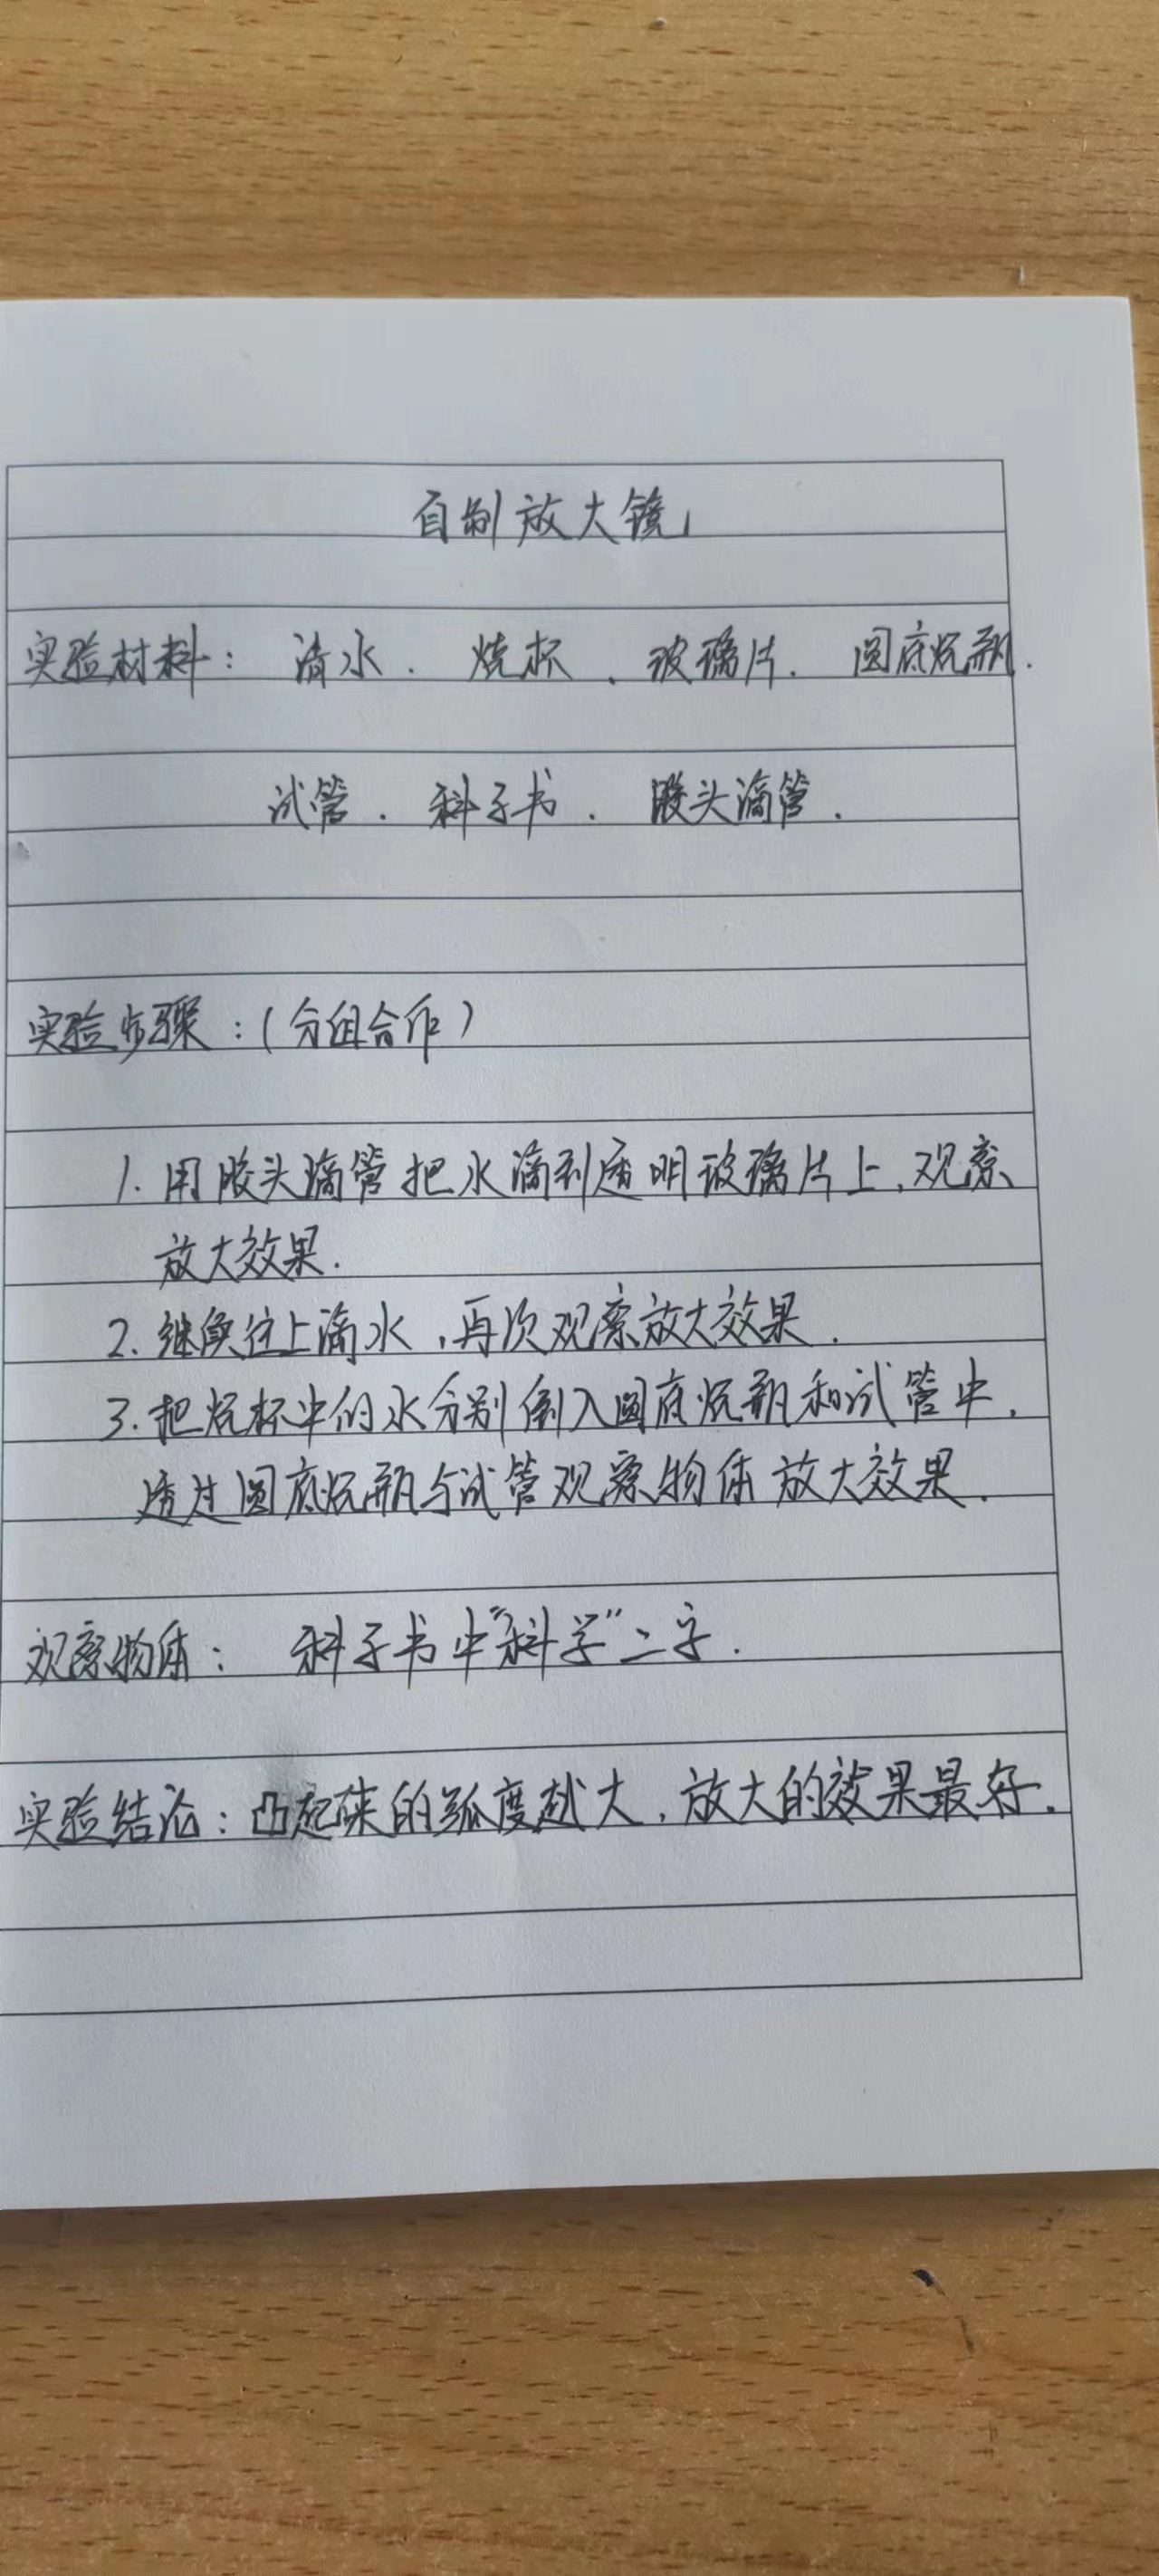 自制放大镜
实验材料：清水．烧杯、玻璃片．圆底烧瓶．
试管．科学书．胶头滴管．
实验步骤：（分组合作）
1.用胶头滴管把水滴到透明玻璃片上，观察
放大效果．
2.继续往上滴水，再次观察放大效果．
3.把烧杯中的水分别倒入圆底烧瓶和试管中，
透过圆底烧瓶与试管观察物体放大效果．
观察物体：科学书中“科学”二字．
实验结论：凸起来的弧度越大，放大的效果最好．